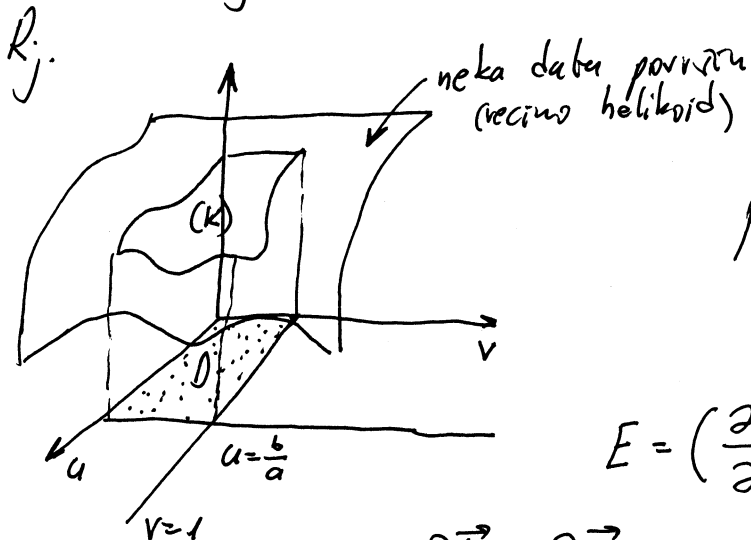 Rj.
neka data površin
(recimo helikoid)
(K)
D
v
u
u = b/a
v=1
E = (∂